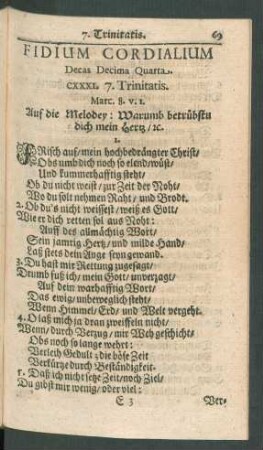 7. Trinitatis. 69
FIDIUM CORDIALIUM
Decas Decima Quarta.
CXXXI. 7. Trinitatis.
Marc. 8. v. 1.
Auf die Melodey: Warumb betrübstu
dich mein Hertz/ ꝛc.
1.
FRisch auf/ mein hochbedrängter Christ/
Obs umb dich noch so elend/ wüst/
Und kummerhafftig steht/
Ob du nicht weist/ zur Zeit der Noht/
Wo du solt nehmen Raht/ und Brodt.
2. Ob du's nicht weissest/ weiß es Gott/
Wie er dich retten sol aus Noht:
Auff des allmächtig Wort/
Sein jamrig Hertz/ und milde Hand/
Laß stets dein Auge seyn gewand.
3. Du hast mir Rettung zugesagt/
Drumb fuß ich/ mein Gott/ unverzagt/
Auf dein warhafftig Wort/
Das ewig/ unbeweglich steht/
Wenn Himmel/ Erd/ und Welt vergeht.
4. O laß mich ja dran zweiffeln nicht/
Wenn/ durch Verzug/ mir Weh geschicht/
Obs noch so lange wehrt:
Verleih Gedult; die böse Zeit
Verkürtze durch Beständigkeit.
5. Daß ich nicht setze Zeit/ noch Ziel/
Du gibst mir wenig/ oder viel:
E 3 Ver-